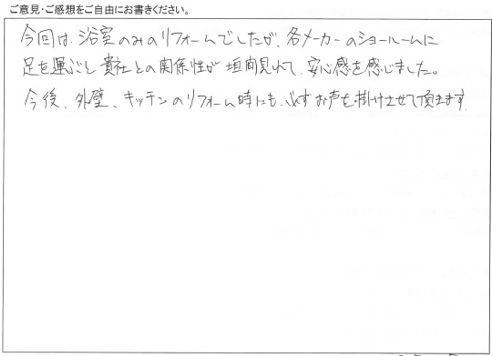 ご意見・ご感想をご自由にお書きください。
今回は、浴室のみのリフォームでしたが、各メーカーのショールームに
足を運ぶと貴社との関係性が垣間見れて、安心感を感じました。
今後、外壁、キッチンのリフォーム時にも、必ずお声を掛けさせて頂きます